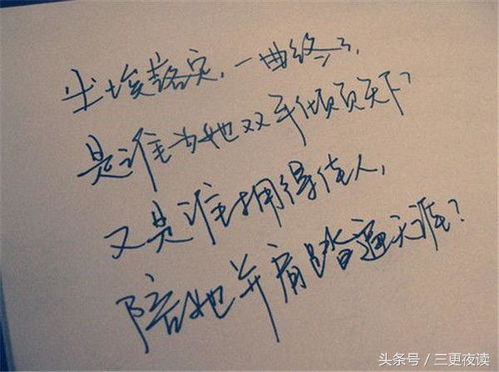 尘埃落定,一曲终了,
是谁为她双手倾天下?
又是谁拥得佳人,
陪她并肩踏遍天涯?
头条号/三更夜读